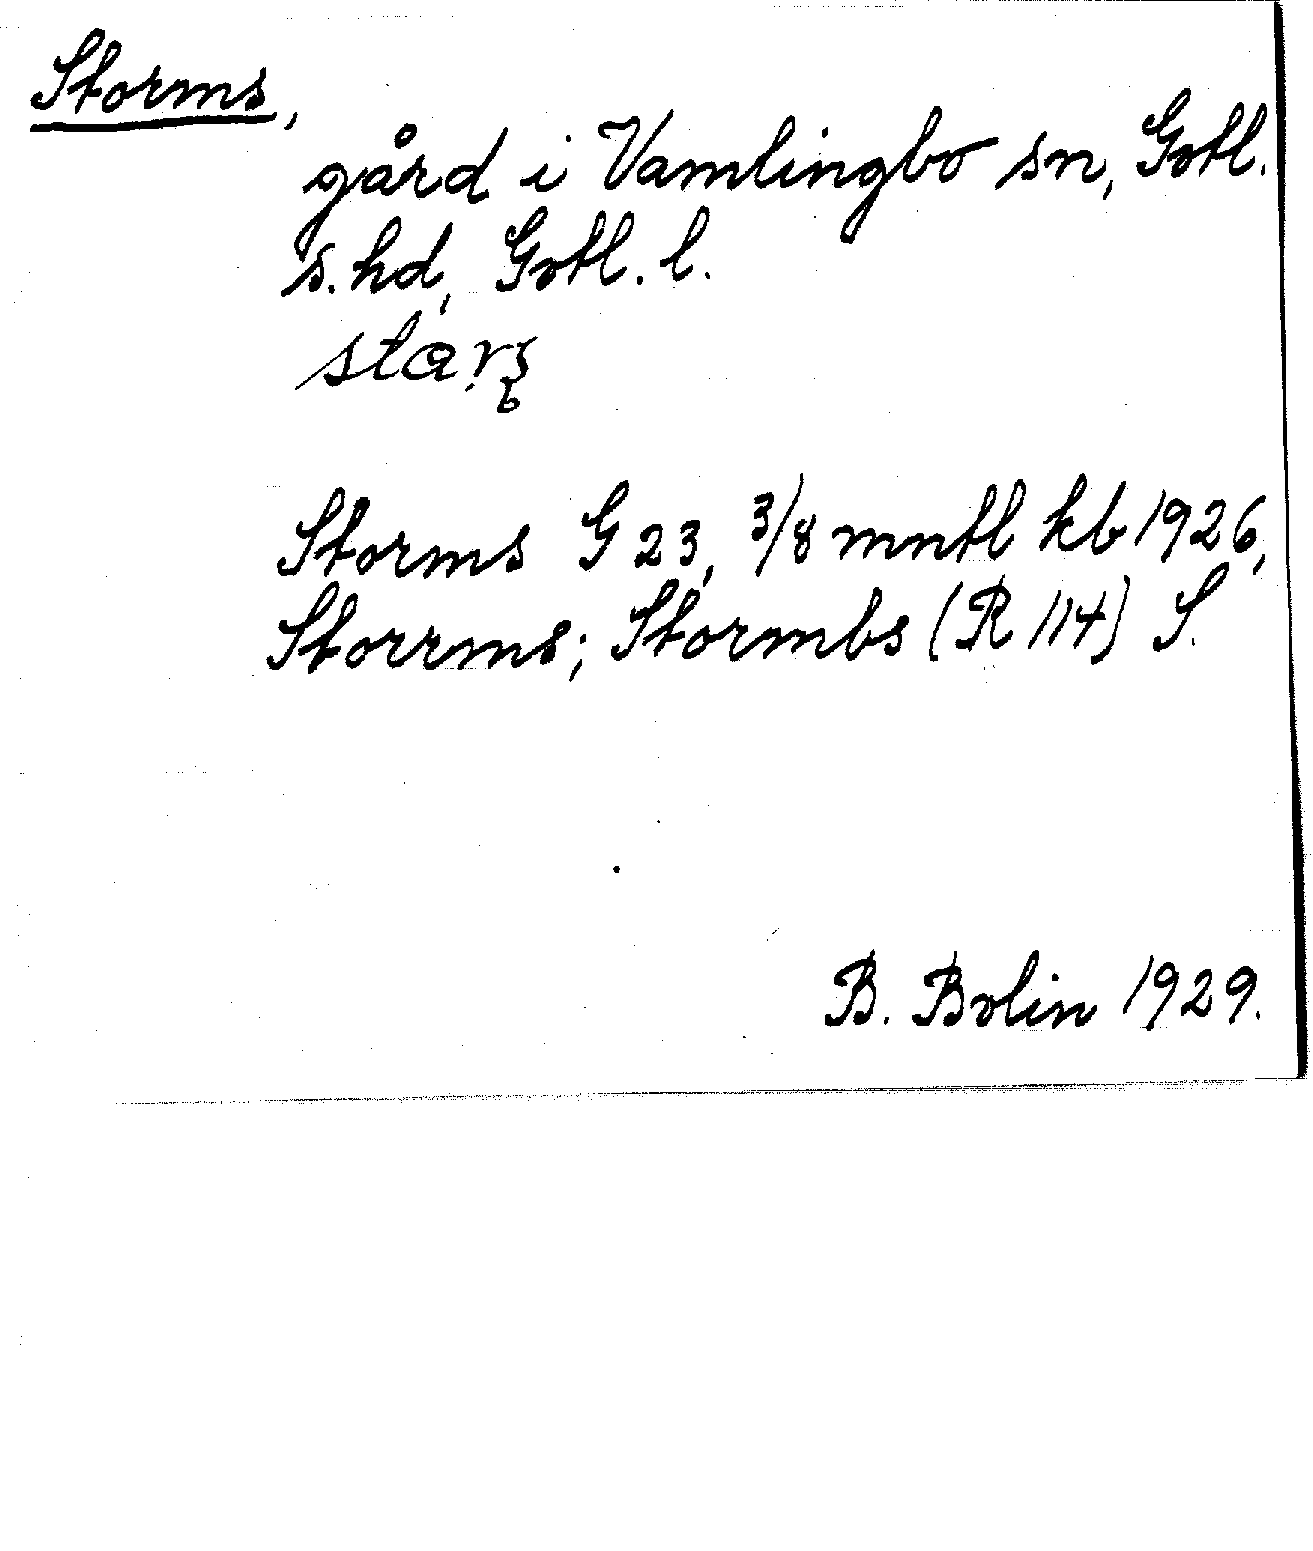 Storms,
gård i Vamlingbo sn, Gotl.
s. hd, Gotl. l.
Storms G 23, 3/8 mntl kb 1926,
Storrms; Stormbs (R 1/14) S.
B. Bolin 1929.